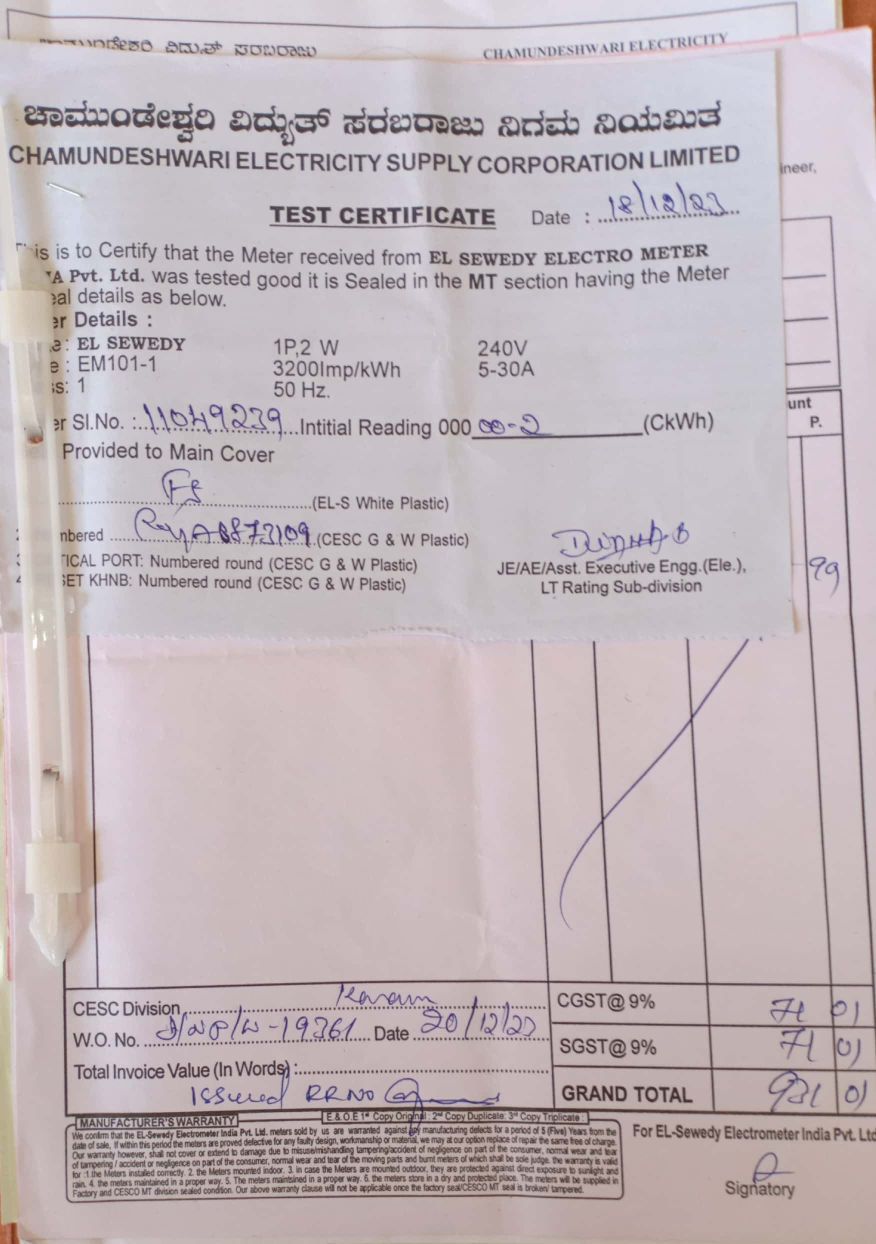 ಚಾಮುಂಡೇಶ್ವರಿ ವಿದ್ಯುತ್ ಸರಬರಾಜು
CHAMUNDESHWARI ELECTRICITY
ಚಾಮುಂಡೇಶ್ವರಿ ವಿದ್ಯುತ್ ಸರಬರಾಜು ನಿಗಮ ನಿಯಮಿತ
CHAMUNDESHWARI ELECTRICITY SUPPLY CORPORATION LIMITED
ineer,
TEST CERTIFICATE Date : 18/12/23
is is to Certify that the Meter received from EL SEWEDY ELECTRO METER
A Pvt. Ltd. was tested good it is Sealed in the MT section having the Meter
eal details as below.
er Details :
e : EL SEWEDY 1P,2 W 240V
e : EM101-1 3200Imp/kWh 5-30A
ss: 1 50 Hz.
unt
P.
er Sl.No. : 11049239 Intitial Reading 000 00-2 (CkWh)
Provided to Main Cover
(EL-S White Plastic)
nbered (CESC G & W Plastic)
TICAL PORT: Numbered round (CESC G & W Plastic)
SET KHNB: Numbered round (CESC G & W Plastic)
JE/AE/Asst. Executive Engg.(Ele.),
LT Rating Sub-division
99
CESC Division
W.O. No. 19361 Date 20/12/23
Total Invoice Value (In Words) :
Issued RRNO
CGST@ 9% 71 01
SGST@ 9% 71 01
GRAND TOTAL 931 01
E & O.E 1st Copy Original : 2nd Copy Duplicate: 3rd Copy Triplicate :
MANUFACTURER'S WARRANTY
We confirm that the EL-Sewedy Electrometer India Pvt. Ltd. meters sold by us are warranted against any manufacturing defects for a period of 5 (Five) Years from the
date of sale, If within this period the meters are proved defective for any faulty design, workmanship or material, we may at our option replace of repair the same free of charge.
Our warranty however, shall not cover or extend to damage due to misuse/mishandling tampering/accident of negligence on part of the consumer, normal wear and tear
of tampering / accident or negligence on part of the consumer, normal wear and tear of the moving parts and burnt meters of which shall be sole judge. the warranty is valid
for :1.the Meters installed correctly. 2. the Meters mounted indoor. 3. in case the Meters are mounted outdoor, they are protected against direct exposure to sunlight and
rain. 4. the meters maintained in a proper way. 5. The meters maintained in a proper way. 6. the meters store in a dry and protected place. The meters will be supplied in
Factory and CESCO MT division sealed condition. Our above warranty clause will not be applicable once the factory seal/CESCO MT seal is broken/ tampered.
For EL-Sewedy Electrometer India Pvt. Ltd
Signatory